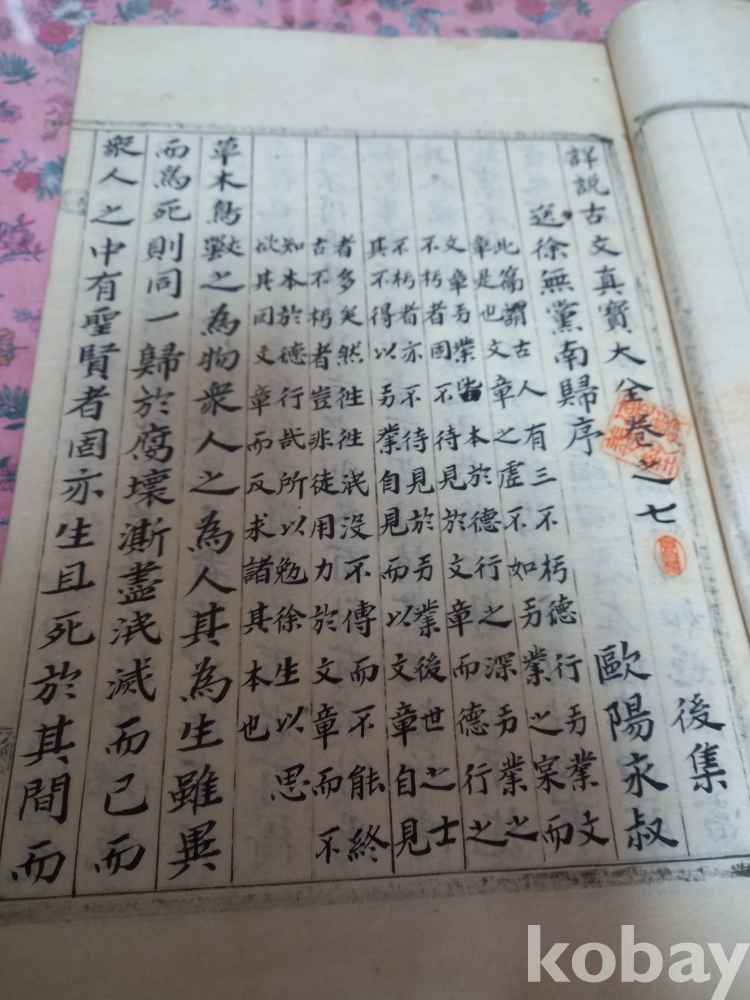 詳說古文真寶大全卷之七 後集
送徐無黨南歸序 歐陽永叔
此篇謂古人有三不朽德行㕝業文
章是也文章之虛不如㕝業之宲而
文章㕝業皆本於德行之深㕝業之
不朽者固不待見於文章而德行之
不朽者亦不待見於㕝業後世之士
其不得以㕝業自見而以文章自見
者多矣然徃徃泯沒不傳而不能終
古不朽者豈非徒用力於文章而不
知本於德行哉所以勉徐生以思
欲其因文章而反求諸其本也
草木鳥獸之為物衆人之為人其為生雖異
而爲死則同一歸於腐壞澌盡泯滅而已而
衆人之中有聖賢者固亦生且死於其間而
kobay